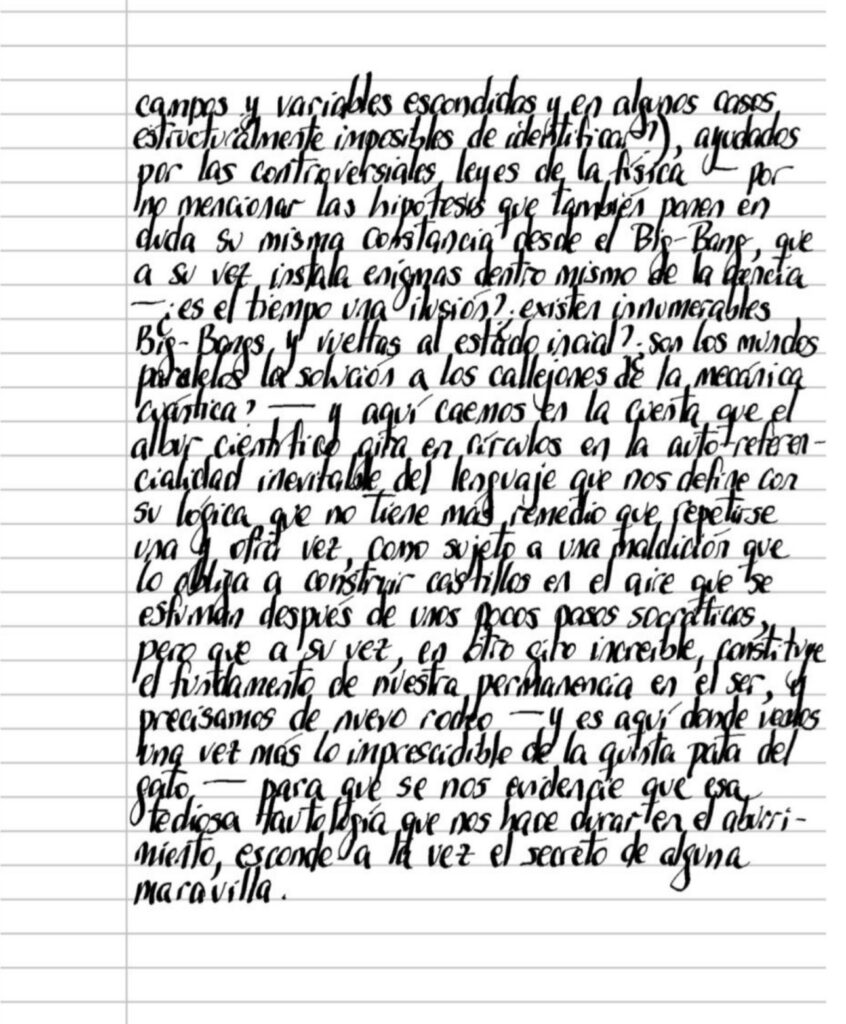 campos y variables escondidas y en algunos casos
estructuralmente imposibles de identificar?), ayudados
por las controversiales leyes de la física — por
no mencionar las hipótesis que también ponen en
duda su misma constancia desde el Big-Bang, que
a su vez instala enigmas dentro mismo de la ciencia
—¿es el tiempo una ilusión?¿existen innumerables
Big-Bangs, y vueltas al estado incial?¿son los mundos
paralelos la solución a los callejones de la mecánica
cuántica? — y aquí caemos en la cuenta que el
albur científico gira en círculos en la auto-referen-
cialidad inevitable del lenguaje que nos define con
su lógica que no tiene más remedio que repetirse
una y otra vez, como sujeto a una maldición que
lo obliga a construir castillos en el aire que se
esfuman después de unos pocos pasos socráticos,
pero que a su vez, en otro giro increíble, constituye
el fundamento de nuestra permanencia en el ser, y
precisamos de nuevo rodeo — y es aquí donde vemos
una vez más lo imprescidible de la quinta pata del
gato — para que se nos evidencie que esa
tediosa tautología que nos hace durar en el aburri-
miento, esconde a la vez el secreto de alguna
maravilla.